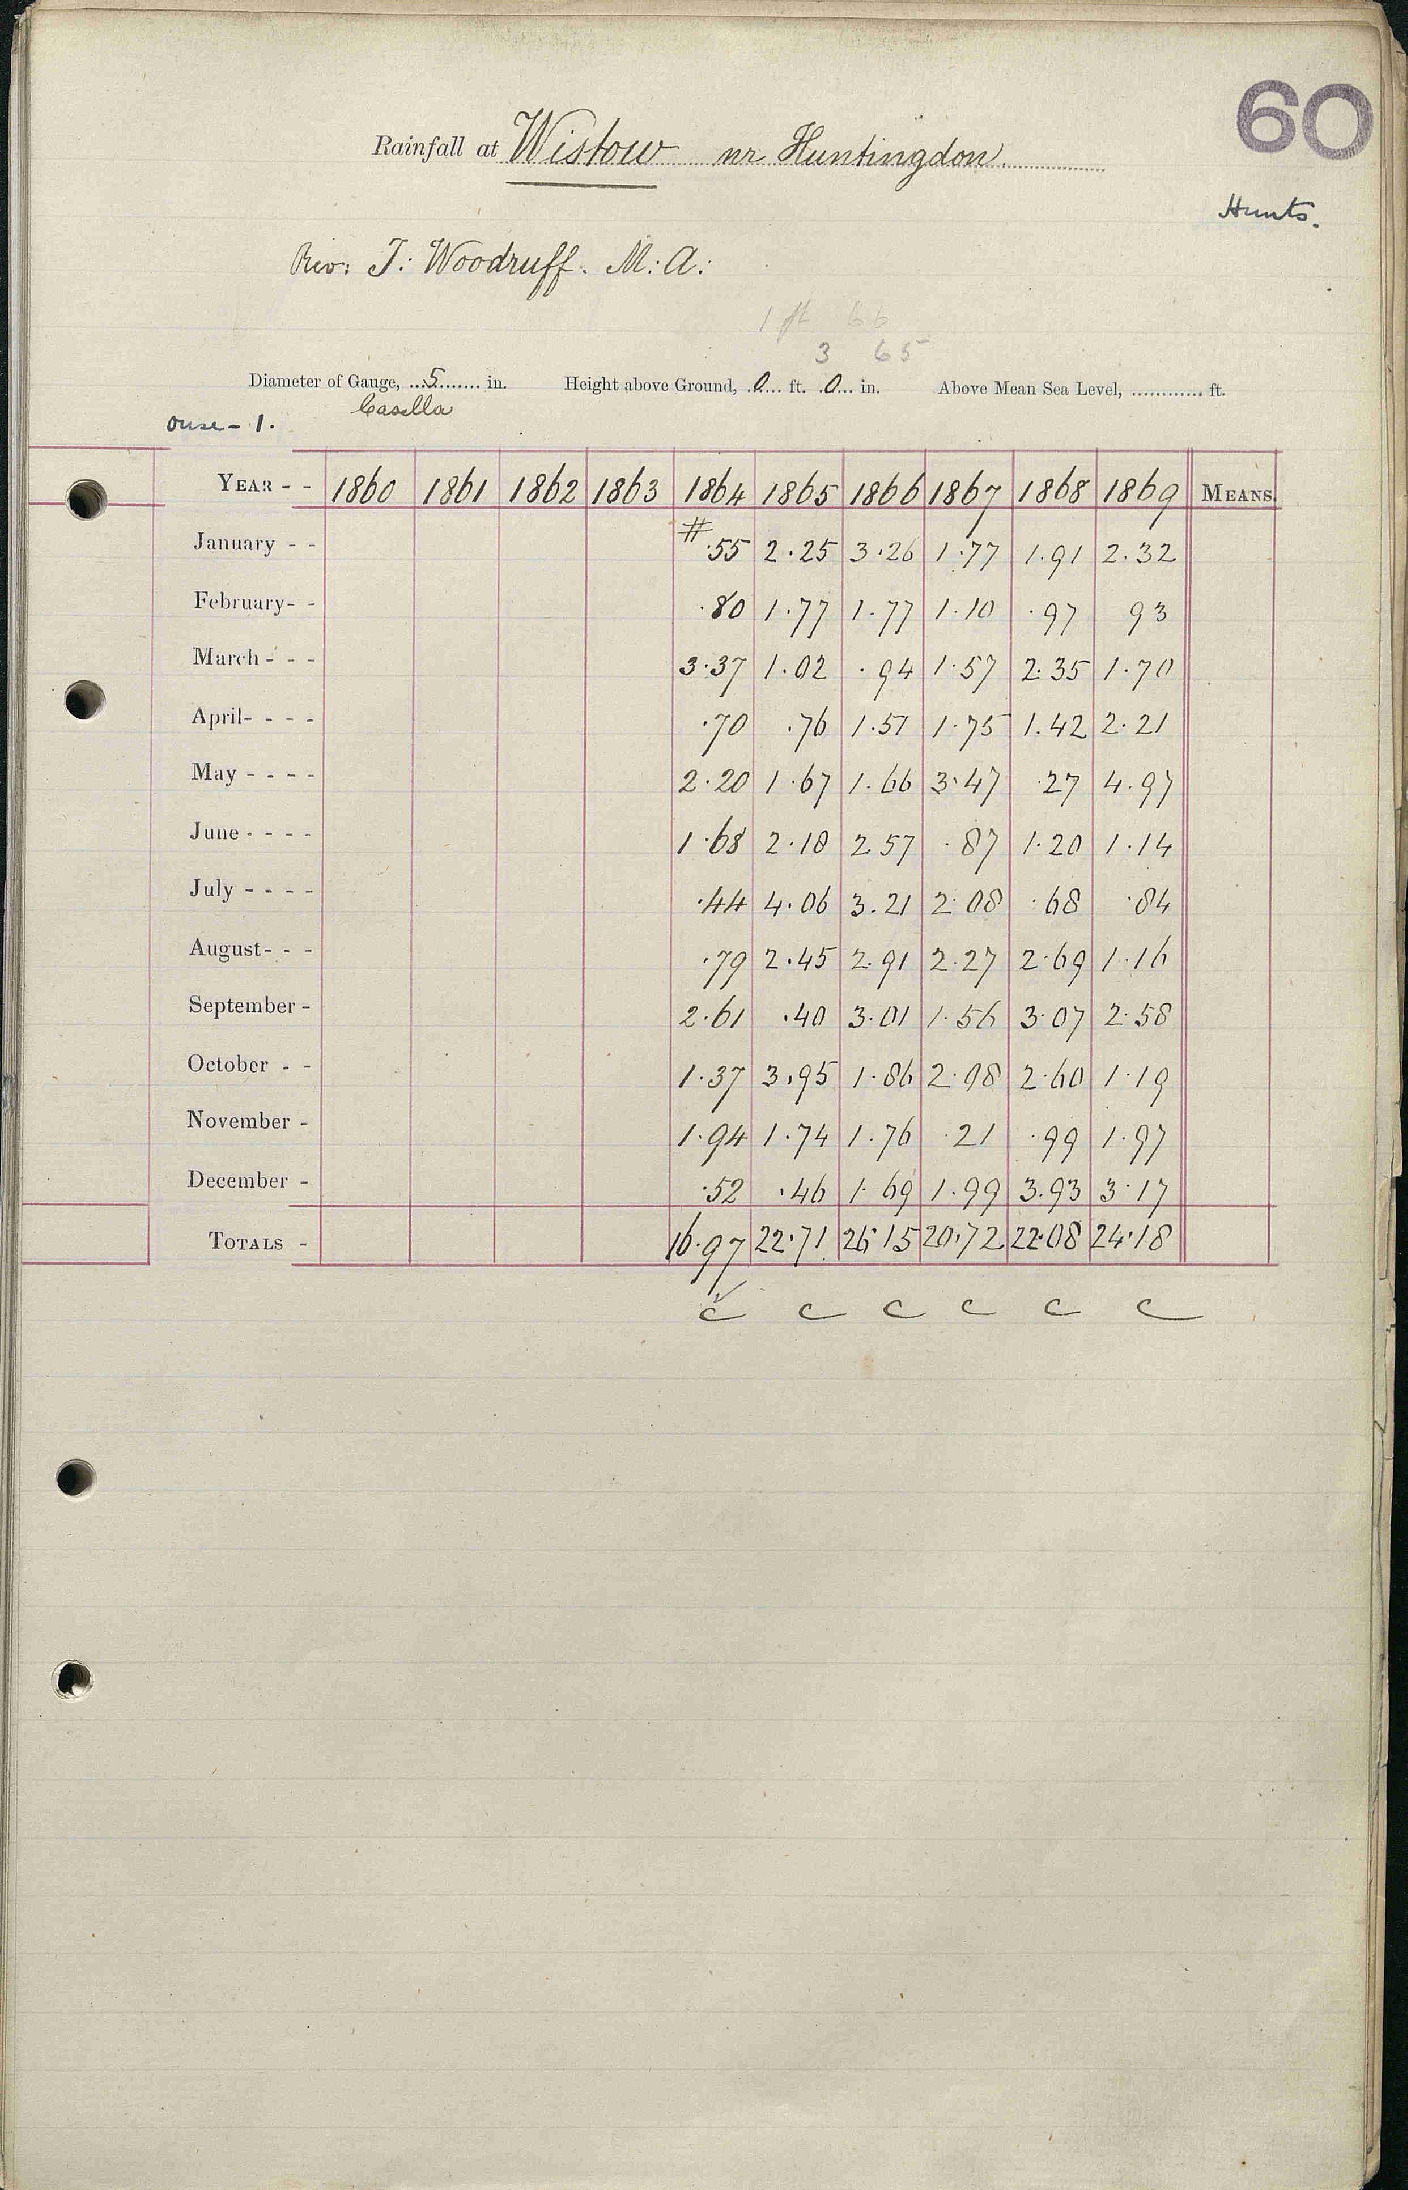 60
Rainfall at Wistow nr Huntingdon
Hunts.
Rev: T: Woodruff. M: A:
1 ft 66
3 65
Diameter of Gauge, 5 in. Height above Ground, 0 ft. 0 in. Above Mean Sea Level, ft.
Casella
Ouse - 1.
YEAR - - 1860 1861 1862 1863 1864 1865 1866 1867 1868 1869 MEANS.
January - - # .55 2.25 3.26 1.77 1.91 2.32
February - - .80 1.77 1.77 1.10 .97 93
March - - - 3.37 1.02 .94 1.57 2.35 1.70
April - - - - .70 .76 1.51 1.75 1.42 2.21
May - - - - 2.20 1.67 1.66 3.47 .27 4.97
June - - - - 1.68 2.18 2.57 .87 1.20 1.14
July - - - - .44 4.06 3.21 2.08 .68 .84
August - - - .79 2.45 2.91 2.27 2.69 1.16
September - 2.61 .40 3.01 1.56 3.07 2.58
October - - 1.37 3.95 1.86 2.08 2.60 1.19
November - 1.94 1.74 1.76 .21 .99 1.97
December - .52 .46 1.69 1.99 3.93 3.17
TOTALS - 16.97 22.71 26.15 20.72 22.08 24.18
c c c c c c